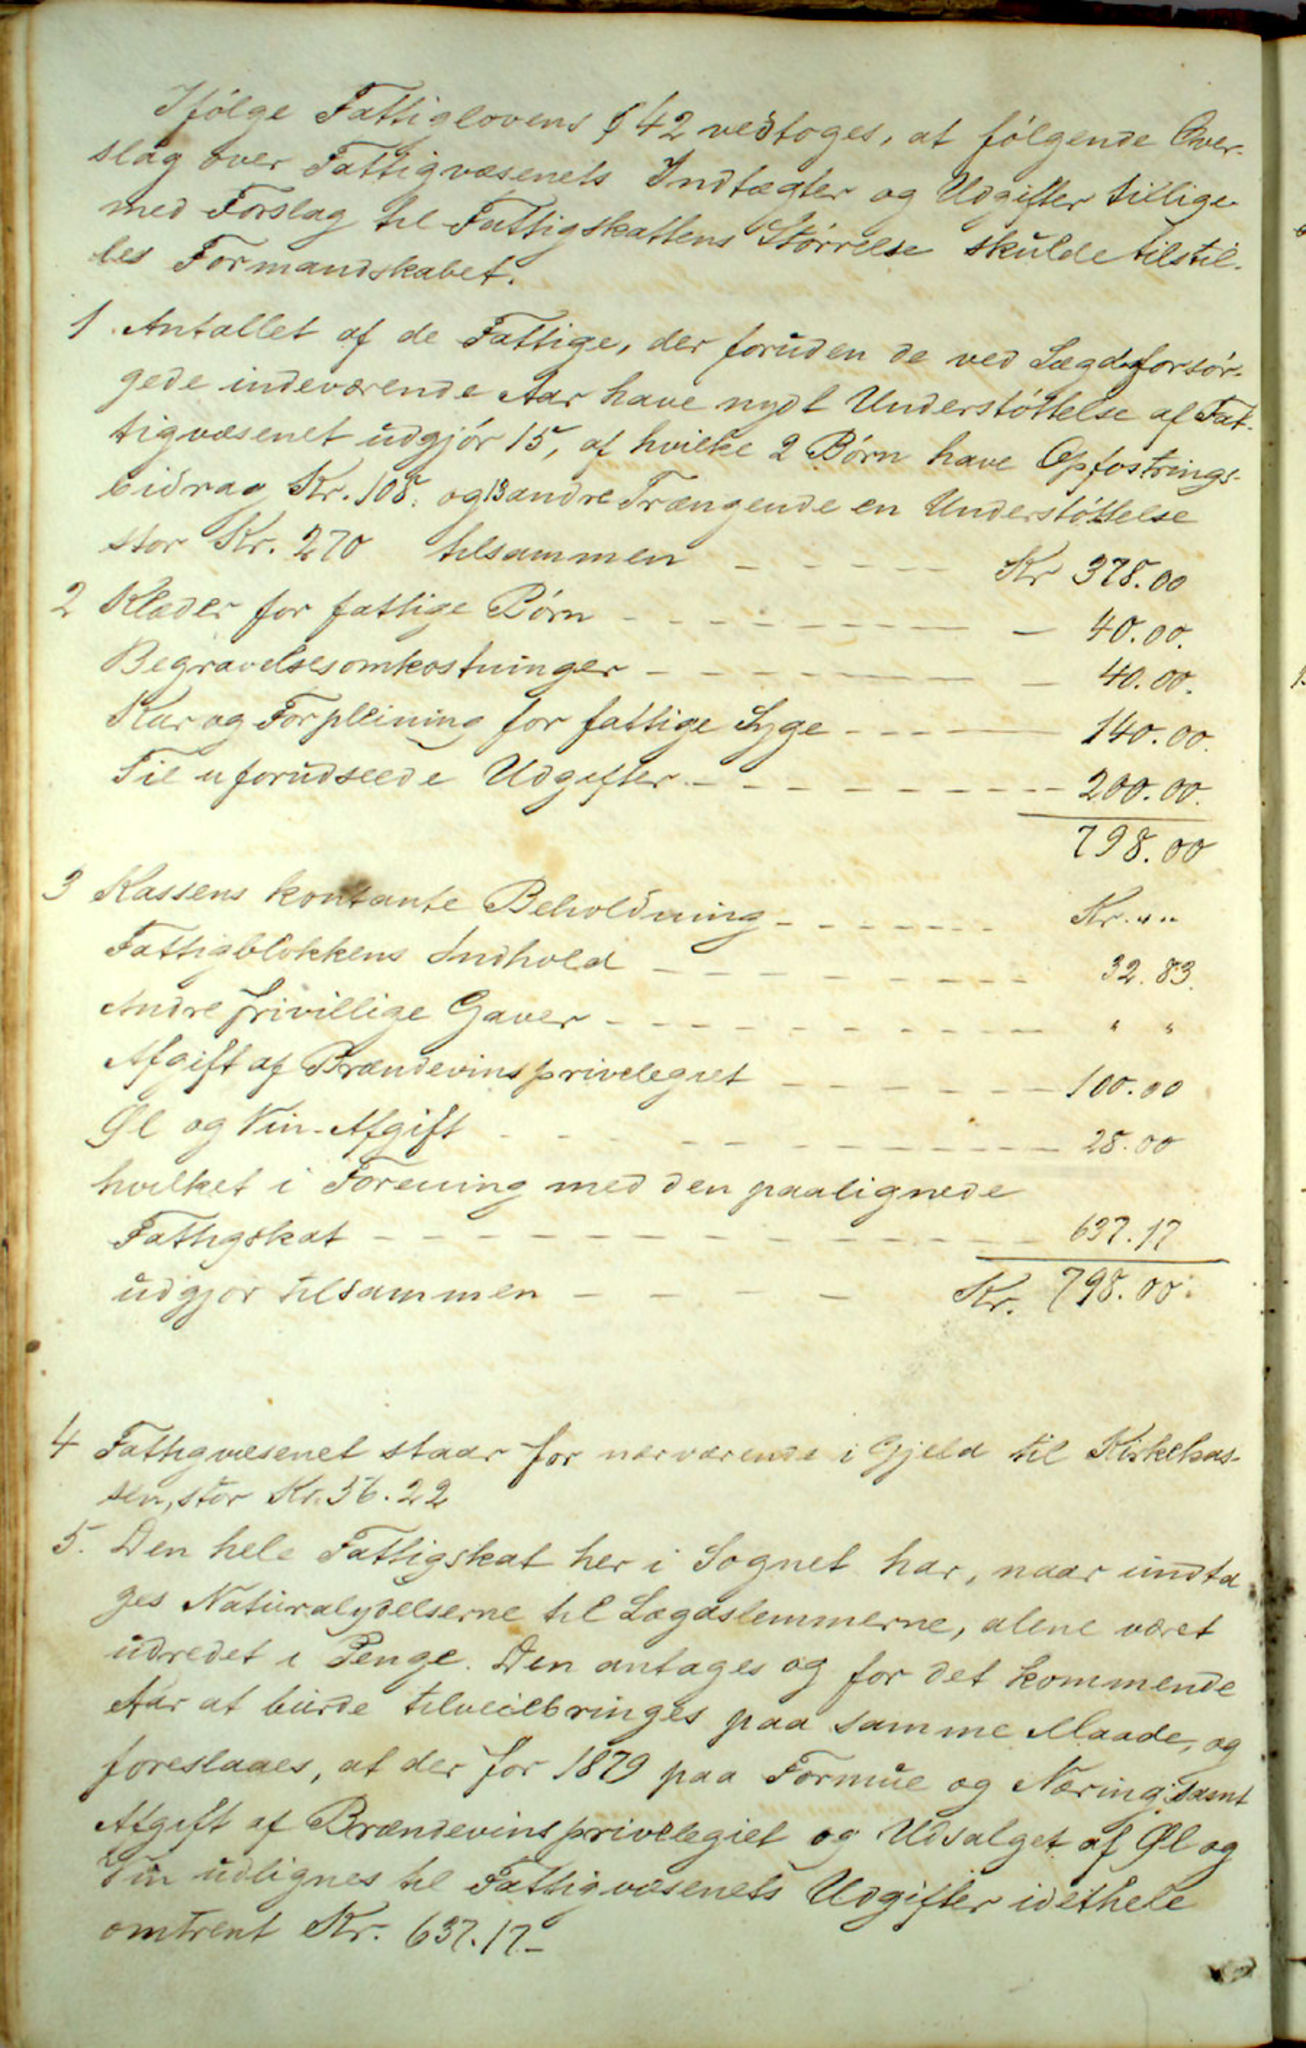 Ifølge Fattiglovens § 42 vedtoges, at følgende Over-
slag over Fattigvæsenets Indtægter og Udgifter tillige-
med Forslag til Fattigskattens Størrelse skulde tilstil-
les Formandskabet.
1. Antallet af de Fattige, der foruden de ved Lægdsforsør-
gede indeværende Aar have nydt Understøttelse af Fat-
tigvæsenet udgjør 15, af hvilke 2 Børn have Opfostrings-
bidrag Kr. 108. og 13 andre Trængende en Understøttelse
stor Kr. 270 tilsammen - - - - - Kr 378.00
2 Klæder for fattige Børn - - - - - - - 40.00.
Begravelsesomkostninger - - - - - - - 40.00.
Kur og Forpleining for fattige Syge - - - - - 140.00.
Til uforudseede Udgifter - - - - - - - - 200.00.
798.00
3 Kassens kontante Beholdning - - - - - - - Kr. " "
Fattigblokkens Indhold - - - - - - - 32.83.
Andre frivillige Gaver - - - - - - - - " "
Afgift af Brændevinsprivelegiet - - - - - - 100.00
Øl og Vin-Afgift - - - - - - - - 28.00
hvilket i Forening med den paalignede
Fattigskat - - - - - - - - - - 637.17
udgjør tilsammen - - - - - Kr. 798.00.
4 Fattigvæsenet staar for nærværende i Gjeld til Kirkekas-
sen, stor Kr. 56.22
5. Den hele Fattigskat her i Sognet har, naar undta
ges Naturalydelserne til Lægdslemmerne, alene været
udredet i Penge. Den antages og for det kommende
Aar at burde tilveiebringes paa samme Maade, og
foreslaaes, at der for 1879 paa Formue og Næring samt
Afgift af Brændevinsprivelegiet og Udsalget af Øl og
Vin udlignes til Fattigvæsenets Udgifter idethele
omtrent Kr. 637.17 -